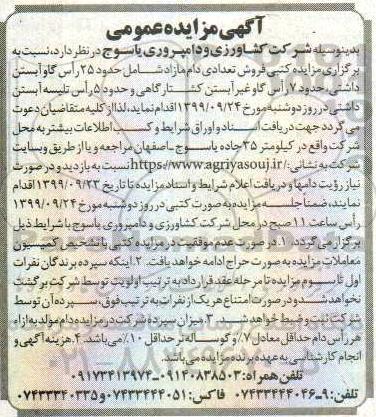 آگهی مزایده عمومی
بدینوسیله شرکت کشاورزی و دامپروری یاسوج در نظر دارد، نسبت به
برگزاری مزایده کتبی فروش تعدادی دام مازاد شامل حدود ۲۵ رأس گاو آبستن
داشتی، حدود ۷ رأس گاو غیر آبستن کشتارگاهی و حدود ۵ رأس تلیسه آبستن
داشتی در روز دوشنبه مورخ ۱۳۹۹/۰۹/۲۴ اقدام نماید، لذا از کلیه متقاضیان دعوت
می گردد جهت دریافت اسناد و اوراق شرایط و کسب اطلاعات بیشتر به محل
شرکت واقع در کیلومتر ۳۵ جاده یاسوج - اصفهان مراجعه و یا از طریق وبسایت
شرکت به نشانی: https://www.agriyasouj.ir/ نسبت به بازدید و در صورت
نیاز رؤیت دامها و دریافت اعلام شرایط و اسناد مزایده تا تاریخ ۱۳۹۹/۰۹/۲۳ اقدام
نمایند، ضمناً جلسه مزایده به صورت کتبی در روز دوشنبه مورخ ۱۳۹۹/۰۹/۲۴
رأس ساعت ۱۱ صبح در محل شرکت کشاورزی و دامپروری یاسوج با شرایط ذیل
برگزار می گردد. ۱. در صورت عدم موفقیت در مزایده کتبی با تشخیص کمیسیون
معاملات مزایده به صورت حراج ادامه خواهد یافت. ۲. اینکه سپرده برندگان نفرات
اول تا سوم مزایده تا مرحله عقد قرارداد به ترتیب اولویت توسط شرکت برگشت
نخواهد شد و در صورت امتناع هر یک از نفرات به ترتیب فوق، سپرده آن توسط
شرکت ثبت و ضبط خواهد شد. ۳. میزان سپرده شرکت در مزایده دام مولد به ازاء
هر رأس دام حداقل معادل ۷٪ و گوساله نر حداقل ۱۰٪ می باشد. ۴. هزینه آگهی و
انجام کارشناسی به عهده برنده مزایده می باشد.
تلفن همراه: ۰۹۱۴۰۸۳۸۵۰۳ - ۰۹۱۷۳۴۱۳۹۷۴
تلفن: ۹-۰۷۴۳۳۴۴۴۰۴۶ فاکس: ۰۷۴۳۳۴۴۴۰۵۱ و ۰۷۴۳۳۳۴۰۳۳۵